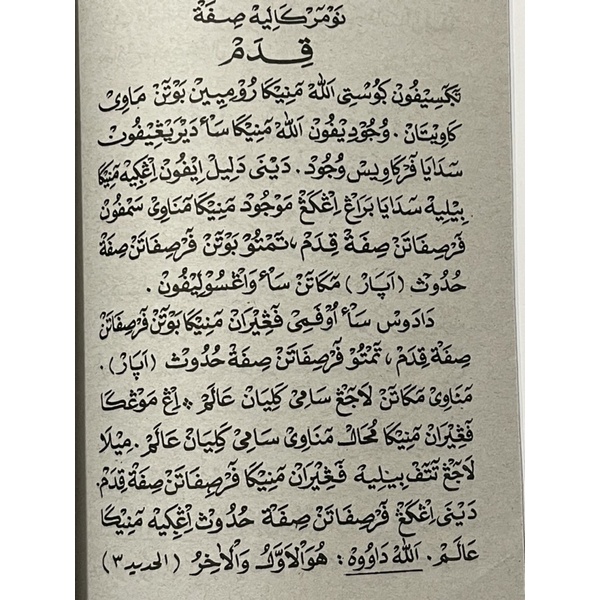 نَوْمَرْ كَالِيْهْ صِفَةْ
قِدَمْ
تَكَسِيْفُوْنْ كُوْسْتِى اَللّٰهْ مَنِيْكَا رُوْمِيْيِنْ بَوْتَنْ مَاوِى
كَاوِيْتَانْ. وُجُوْدِيْفُوْنْ اَللّٰهْ مَنِيْكَا سَأْ دَيْرَيْڠِيْفُوْنْ
سَدَايَا فَرْكَاوِيْسْ وُجُوْدْ. دَيْنَى دَلِيْلْ اِيْفُوْنْ اِڠْكِيْهْ مَنِيْكَا
بِيْلِيْهْ سَدَايَا بَرَاڠْ اِڠْكَڠْ مَوْجُوْدْ مَنِيْكَا مَنَاوِى سَمْفُوْنْ
فَرْصِفَاتَنْ صِفَةْ قِدَمْ، تَمْتُوْ بَوْتَنْ فَرْصِفَاتَنْ صِفَةْ
حُدُوْثْ (اَپَارْ) مَكَاتَنْ سَأْ وَاڠْسُوْلِيْفُوْنْ.
دَادَوْسْ سَأْ اُوْفَمِى فَڠَيْرَانْ مَنِيْكَا بَوْتَنْ فَرْصِفَاتَنْ
صِفَةْ قِدَمْ، تَمْتُوْ فَرْصِفَاتَنْ صِفَةْ حُدُوْثْ (اَپَارْ).
مَنَاوِى مَكَاتَنْ لَاجَڠْ سَامِى كَلِيَانْ عَالَمْ * اِڠْ مَوْڠْكَا
فَڠَيْرَانْ مَنِيْكَا مُحَالْ مَنَاوِى سَامِى كَلِيَانْ عَالَمْ. مِيْلَا
لَاجَڠْ تَتَفْ بِيْلِيْهْ فَڠَيْرَانْ مَنِيْكَا فَرْصِفَاتَنْ صِفَةْ قِدَمْ.
دَيْنَى اِڠْكَڠْ فَرْصِفَاتَنْ صِفَةْ حُدُوْثْ اِڠْكِيْهْ مَنِيْكَا
عَالَمْ. اَللّٰهْ دَاوُوْهْ: هُوَ الْاَوَّلُ وَالْاٰخِرُ (الحديد ٣)